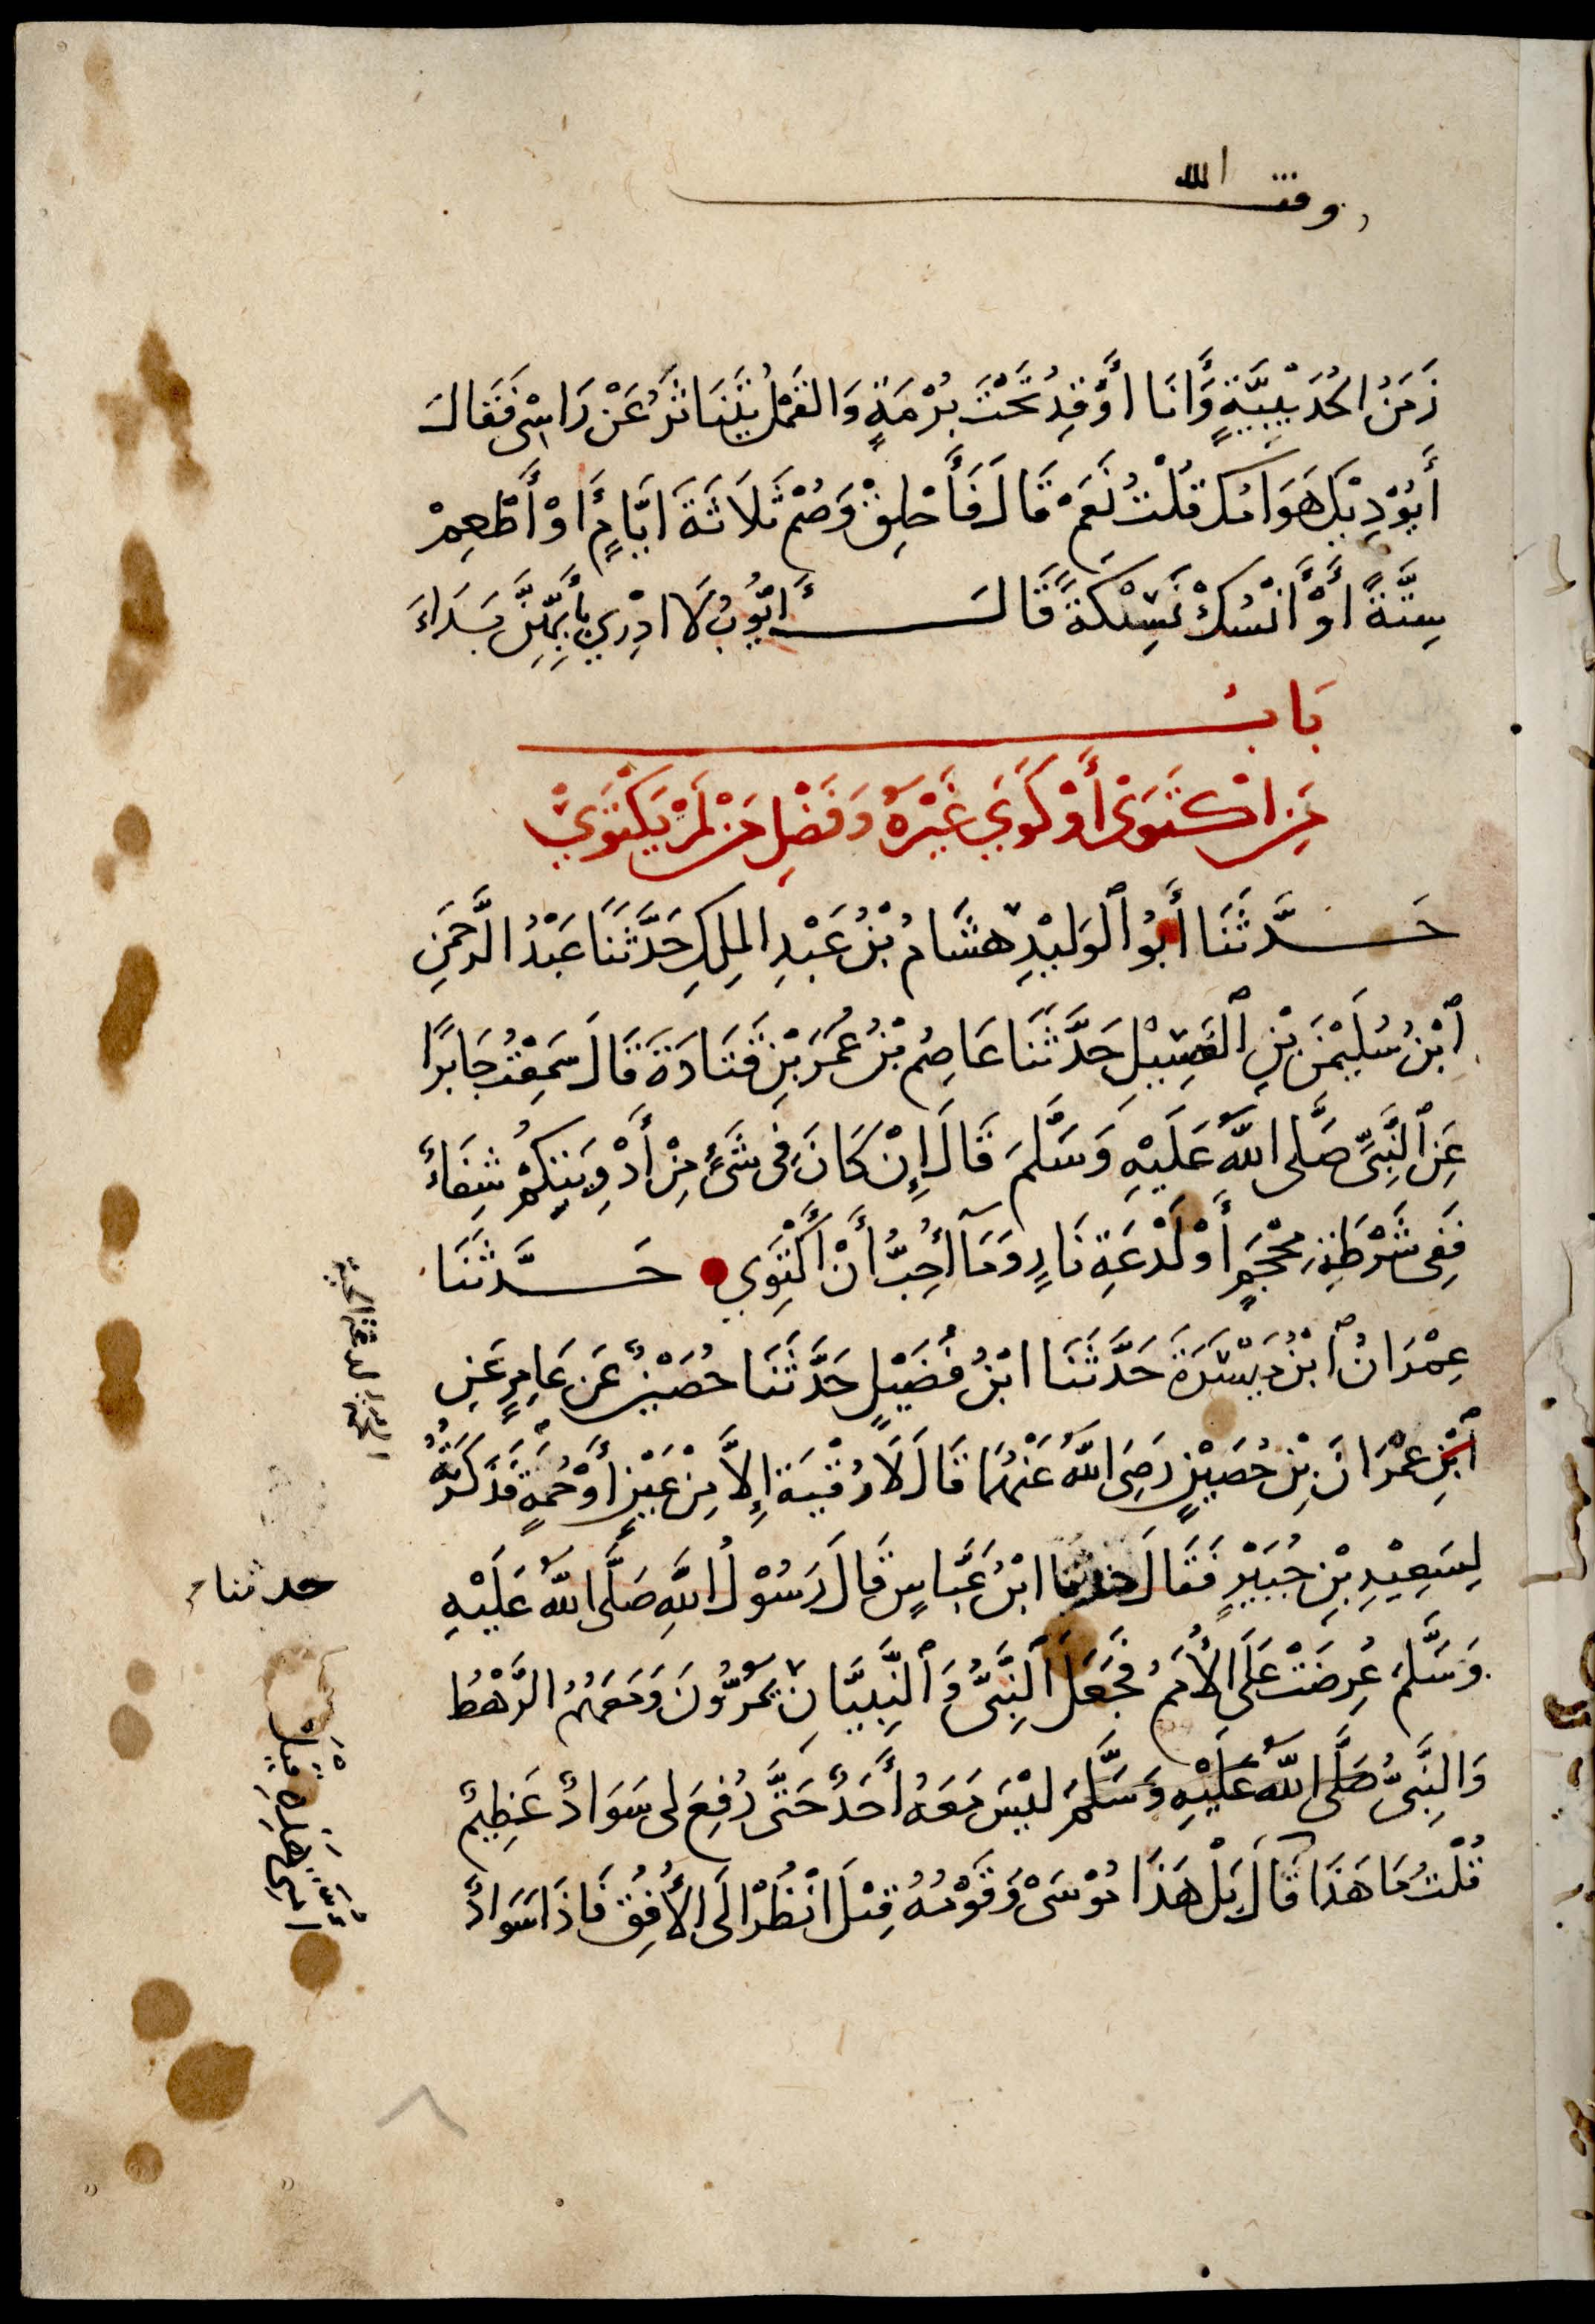 وقف لله
زَمَنَ الحُدَيْبِيَّةِ وَأَنَا أَوْقِدُ تَحْتَ بُرْمَةٍ وَالقَمْلُ يَتَنَاثَرُ عَنْ رَاسِى فَقَالَ
أَيُؤْذِيْكَ هَوَامُّكَ قُلْتُ نَعَمْ قَالَ فَأَحْلِقْ وَصُمْ ثَلَاثَةَ ايَّامٍ أَوْ أَطْعِمْ
سِتَّةً أَوْ أَنْسُكْ نَسِيْكَةً قَالَ أَيُّوبُ لَا ادْرِي بِأَيَّتِهِنَّ بَدَاءَ
بَابُ
مَنِ اكْتَوَى أَوْ كَوَى غَيْرَهُ وَفَضْلِ مَنْ لَمْ يَكْتَوِيْ
حَدَّثَنَا أَبُو الوَلِيْدِ هِشَامُ بْنُ عَبْدِ المَلِكِ حَدَّثَنَا عَبْدُ الرَّحْمَنِ
ابْنُ سُلَيْمٰنَ بْنِ الغَسِيْلِ حَدَّثَنَا عَاصِمُ بْنُ عُمَرَ بْنِ قَتَادَةَ قَالَ سَمِعْتُ جَابِرًا
عَنِ النَّبِيِّ صَلَّى اللَّهُ عَلَيْهِ وَسَلَّمَ قَالَ إِنْ كَانَ فِى شَىْءٍ مِنْ أَدْوِيَتِكُمْ شِفَاءٌ
فَفِى شَرْطَةِ مِحْجَمٍ أَوْ لَدْعَةِ نَارٍ وَمَآ أُحِبُّ أَنْ أَكْتَوِي حَدَّثَنَا
عِمْرَانُ ابْنُ مَيْسَرَةَ حَدَّثَنَا ابْنُ فُضَيْلٍ حَدَّثَنَا حُصَيْنٌ عَنْ عَامِرٍ عَنِ
ابْنِ عِمْرَانَ بْنِ حُصَيْنٍ رَضِىَ اللَّهُ عَنْهُمَا قَالَ لَا رُقْيَةَ إِلَّا مِنْ عَيْنٍ أَوْ حُمَةٍ فَذَكَرْتُهُ
لِسَعِيْدِ بْنِ جُبَيْرٍ فَقَالَ حدثنا ابْنُ عَبَّاسٍ قَالَ رَسُوْلُ اللَّهِ صَلَّى اللَّهُ عَلَيْهِ
وَسَلَّمَ عُرِضَتْ عَلَى الأُمَمُ فَجَعَلَ النَّبِىُّ وَالنَّبِيَّانِ يَمُرُّونَ وَمَعَهُمُ الرَّهْطُ
وَالنَّبِىُّ صَلَّى اللَّهُ عَلَيْهِ وَسَلَّمَ لَيْسَ مَعَهُ أَحَدٌ حَتَّى رُفِعَ لى سَوَادٌ عَظِيمٌ
قُلْتُ مَا هَذَا قَالَ بَلْ هَذَا مُوْسَى وَقَوْمُهُ قِيْلَ انْظُرْ الَى الأُفُقِ فَاذَا سَوَادٌ
حدثنا